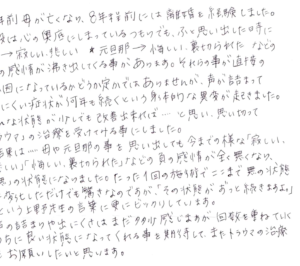 年前 母が亡くなり、8年程前には離婚を経験しました。
は心の奥底にしまっているつもりでも、ふと思い出した時に
→ 寂しい、悲しい ★元旦那→悔しい、裏切られた などの
の感情が湧き出してくる事がありました。それらの事が直接の
因になっているかどうか定かではありませんが、声が詰まって
にくい症状が何年も続くという身体的な異常が起きました。
んな状態が少しでも改善出来れば…と思い、思い切って
ラウマの治療を受けてみる事にしました。
果は…母や元旦那の事を思い出しても今までの様な「寂しい、
しい」「悔しい、裏切られた」などの負の感情が全く無くなり、
の状態になりました。たった1回の施術でここまで無の状態
しただけでも驚きなのですが、「その状態がずっと続きますよ。」
という上野先生の言葉に更にビックリしています。
の詰まりや出にくさはまだ多少感じますが回数を重ねていく
ちに良い状態になってくれる事を期待して、またトラウマの治療
お願いしたいと思います。